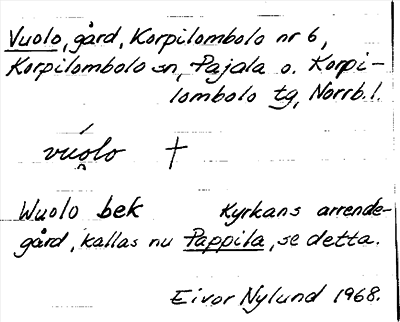 Vuolo, gård, Korpilombolo nr 6,
Korpilombolo sn, Pajala o. Korpi-
lombolo tg, Norrb. l.
vúo̥lo †
Wuolo bek Kyrkans arrende-
gård, kallas nu Pappila, se detta.
Eivor Nylund 1968.